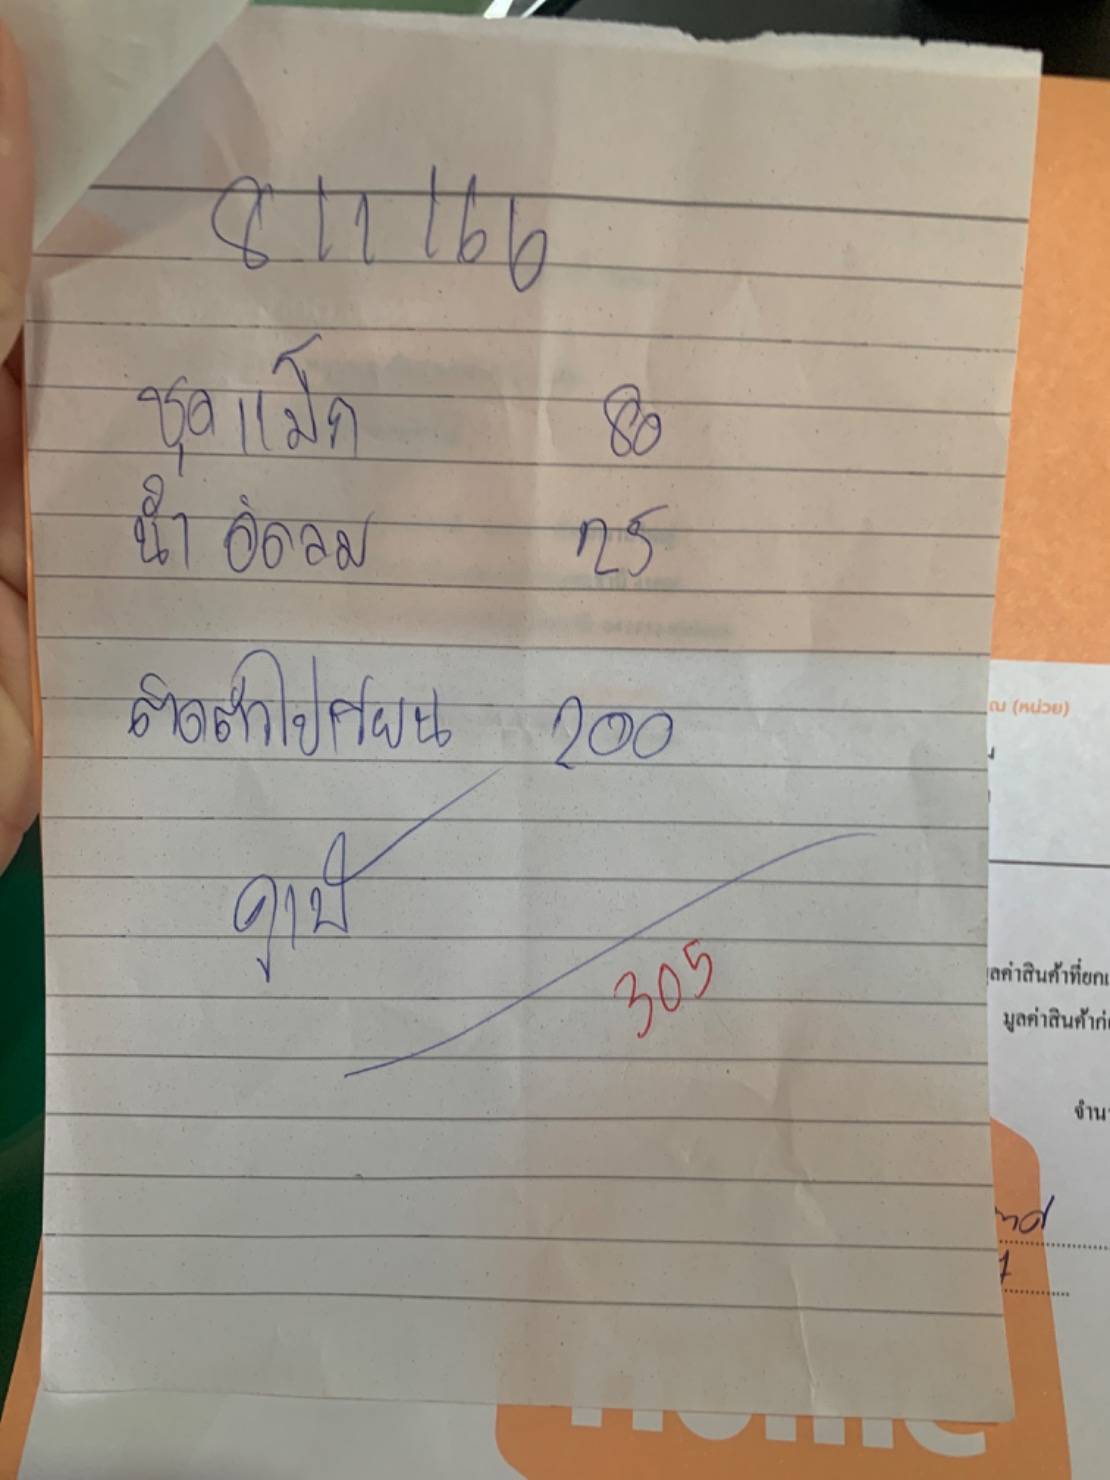 8/1/66
ชุดแม็ค 80
น้ำอัดลม 25
ติดตัวไปเรียน 200
305
ณ (หน่วย)
ูลค่าสินค้าที่ยกเ
มูลค่าสินค้าก่
จำน
home